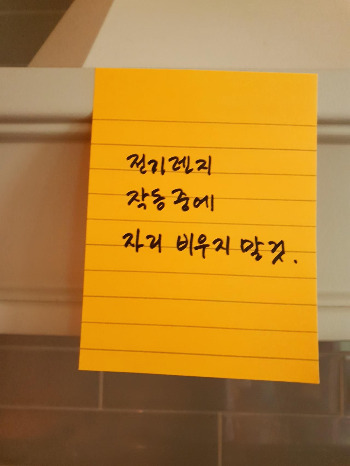 전기렌지
작동중에
자리 비우지 말것.